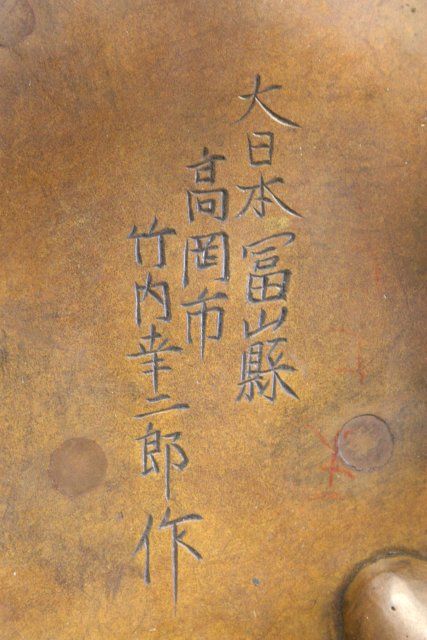 大日本冨山縣
高岡市
竹内幸二郎作